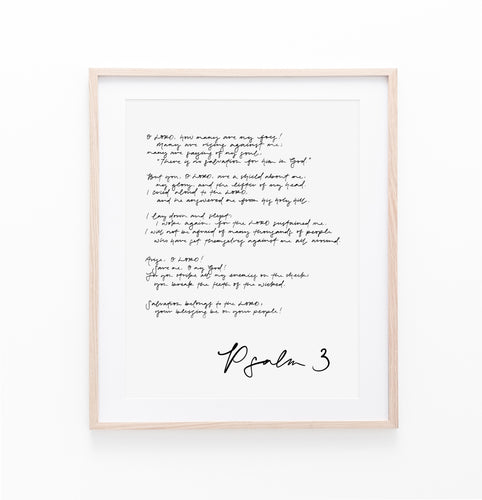 O LORD, how many are my foes!
Many are rising against me;
many are saying of my soul,
"There is no salvation for him in God."
But you, O LORD, are a shield about me,
my glory, and the lifter of my head.
I cried aloud to the LORD,
and he answered me from his holy hill.
I lay down and slept;
I woke again, for the LORD sustained me.
I will not be afraid of many thousands of people
who have set themselves against me all around.
Arise, O LORD!
Save me, O my God!
For you strike all my enemies on the cheek;
you break the teeth of the wicked.
Salvation belongs to the LORD;
your blessing be on your people!
Psalm 3